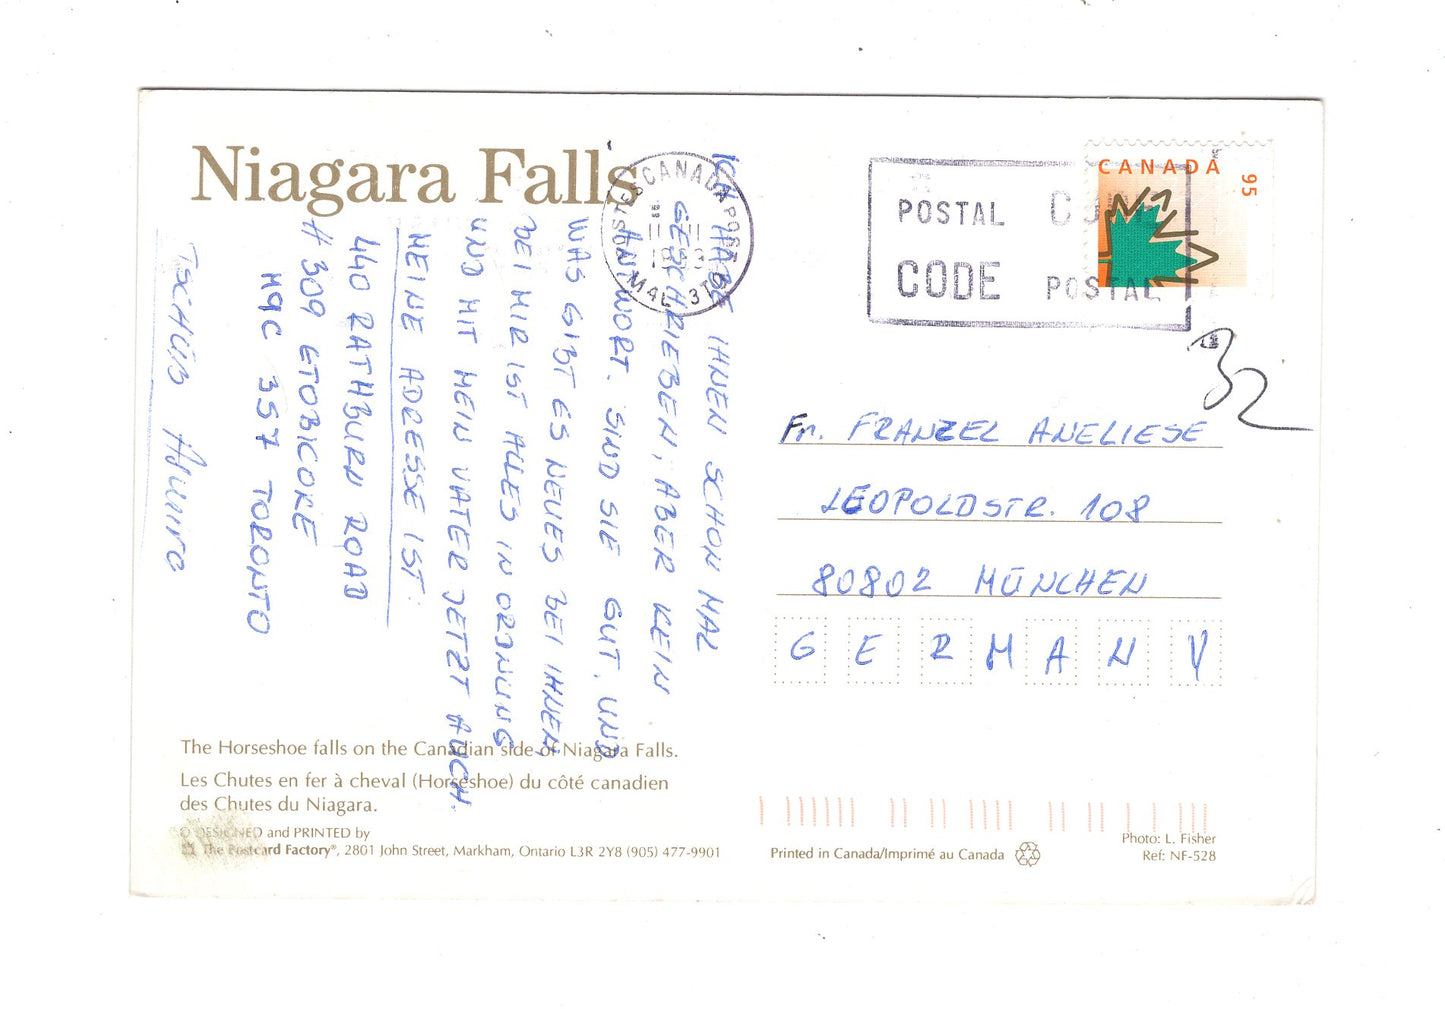 Niagara Falls
ICH HABE IHNEN SCHON MAL
GESCHRIEBEN, ABER KEIN
ANTWORT. SIND SIE GUT, UND
WAS GIBT ES NEUES BEI IHNEN
BEI MIR IST ALLES IN ORDNUNG
UND MIT MEIN VATER JETZT AUCH.
MEINE ADRESSE IST:
440 RATHBURN ROAD
# 309 ETOBICOKE
M9C 3S7 TORONTO
TSCHÜß
CANADA POST
M4L 3T0
POSTAL
CODE
CODE
POSTAL
CANADA
95
32
Fr. FRANZEL ANELIESE
LEOPOLDSTR. 108
80802 MÜNCHEN
GERMANY
The Horseshoe falls on the Canadian side of Niagara Falls.
Les Chutes en fer à cheval (Horseshoe) du côté canadien
des Chutes du Niagara.
© DESIGNED and PRINTED by
The Postcard Factory®, 2801 John Street, Markham, Ontario L3R 2Y8 (905) 477-9901
Printed in Canada/Imprimé au Canada
Photo: L. Fisher
Ref: NF-528